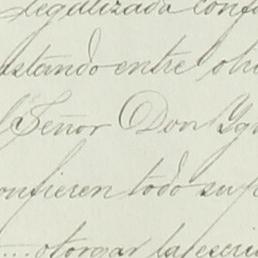 legalizada conf
stando entre otr
l Señor Don Ygn
onfieren todo su p
otorgar la escri